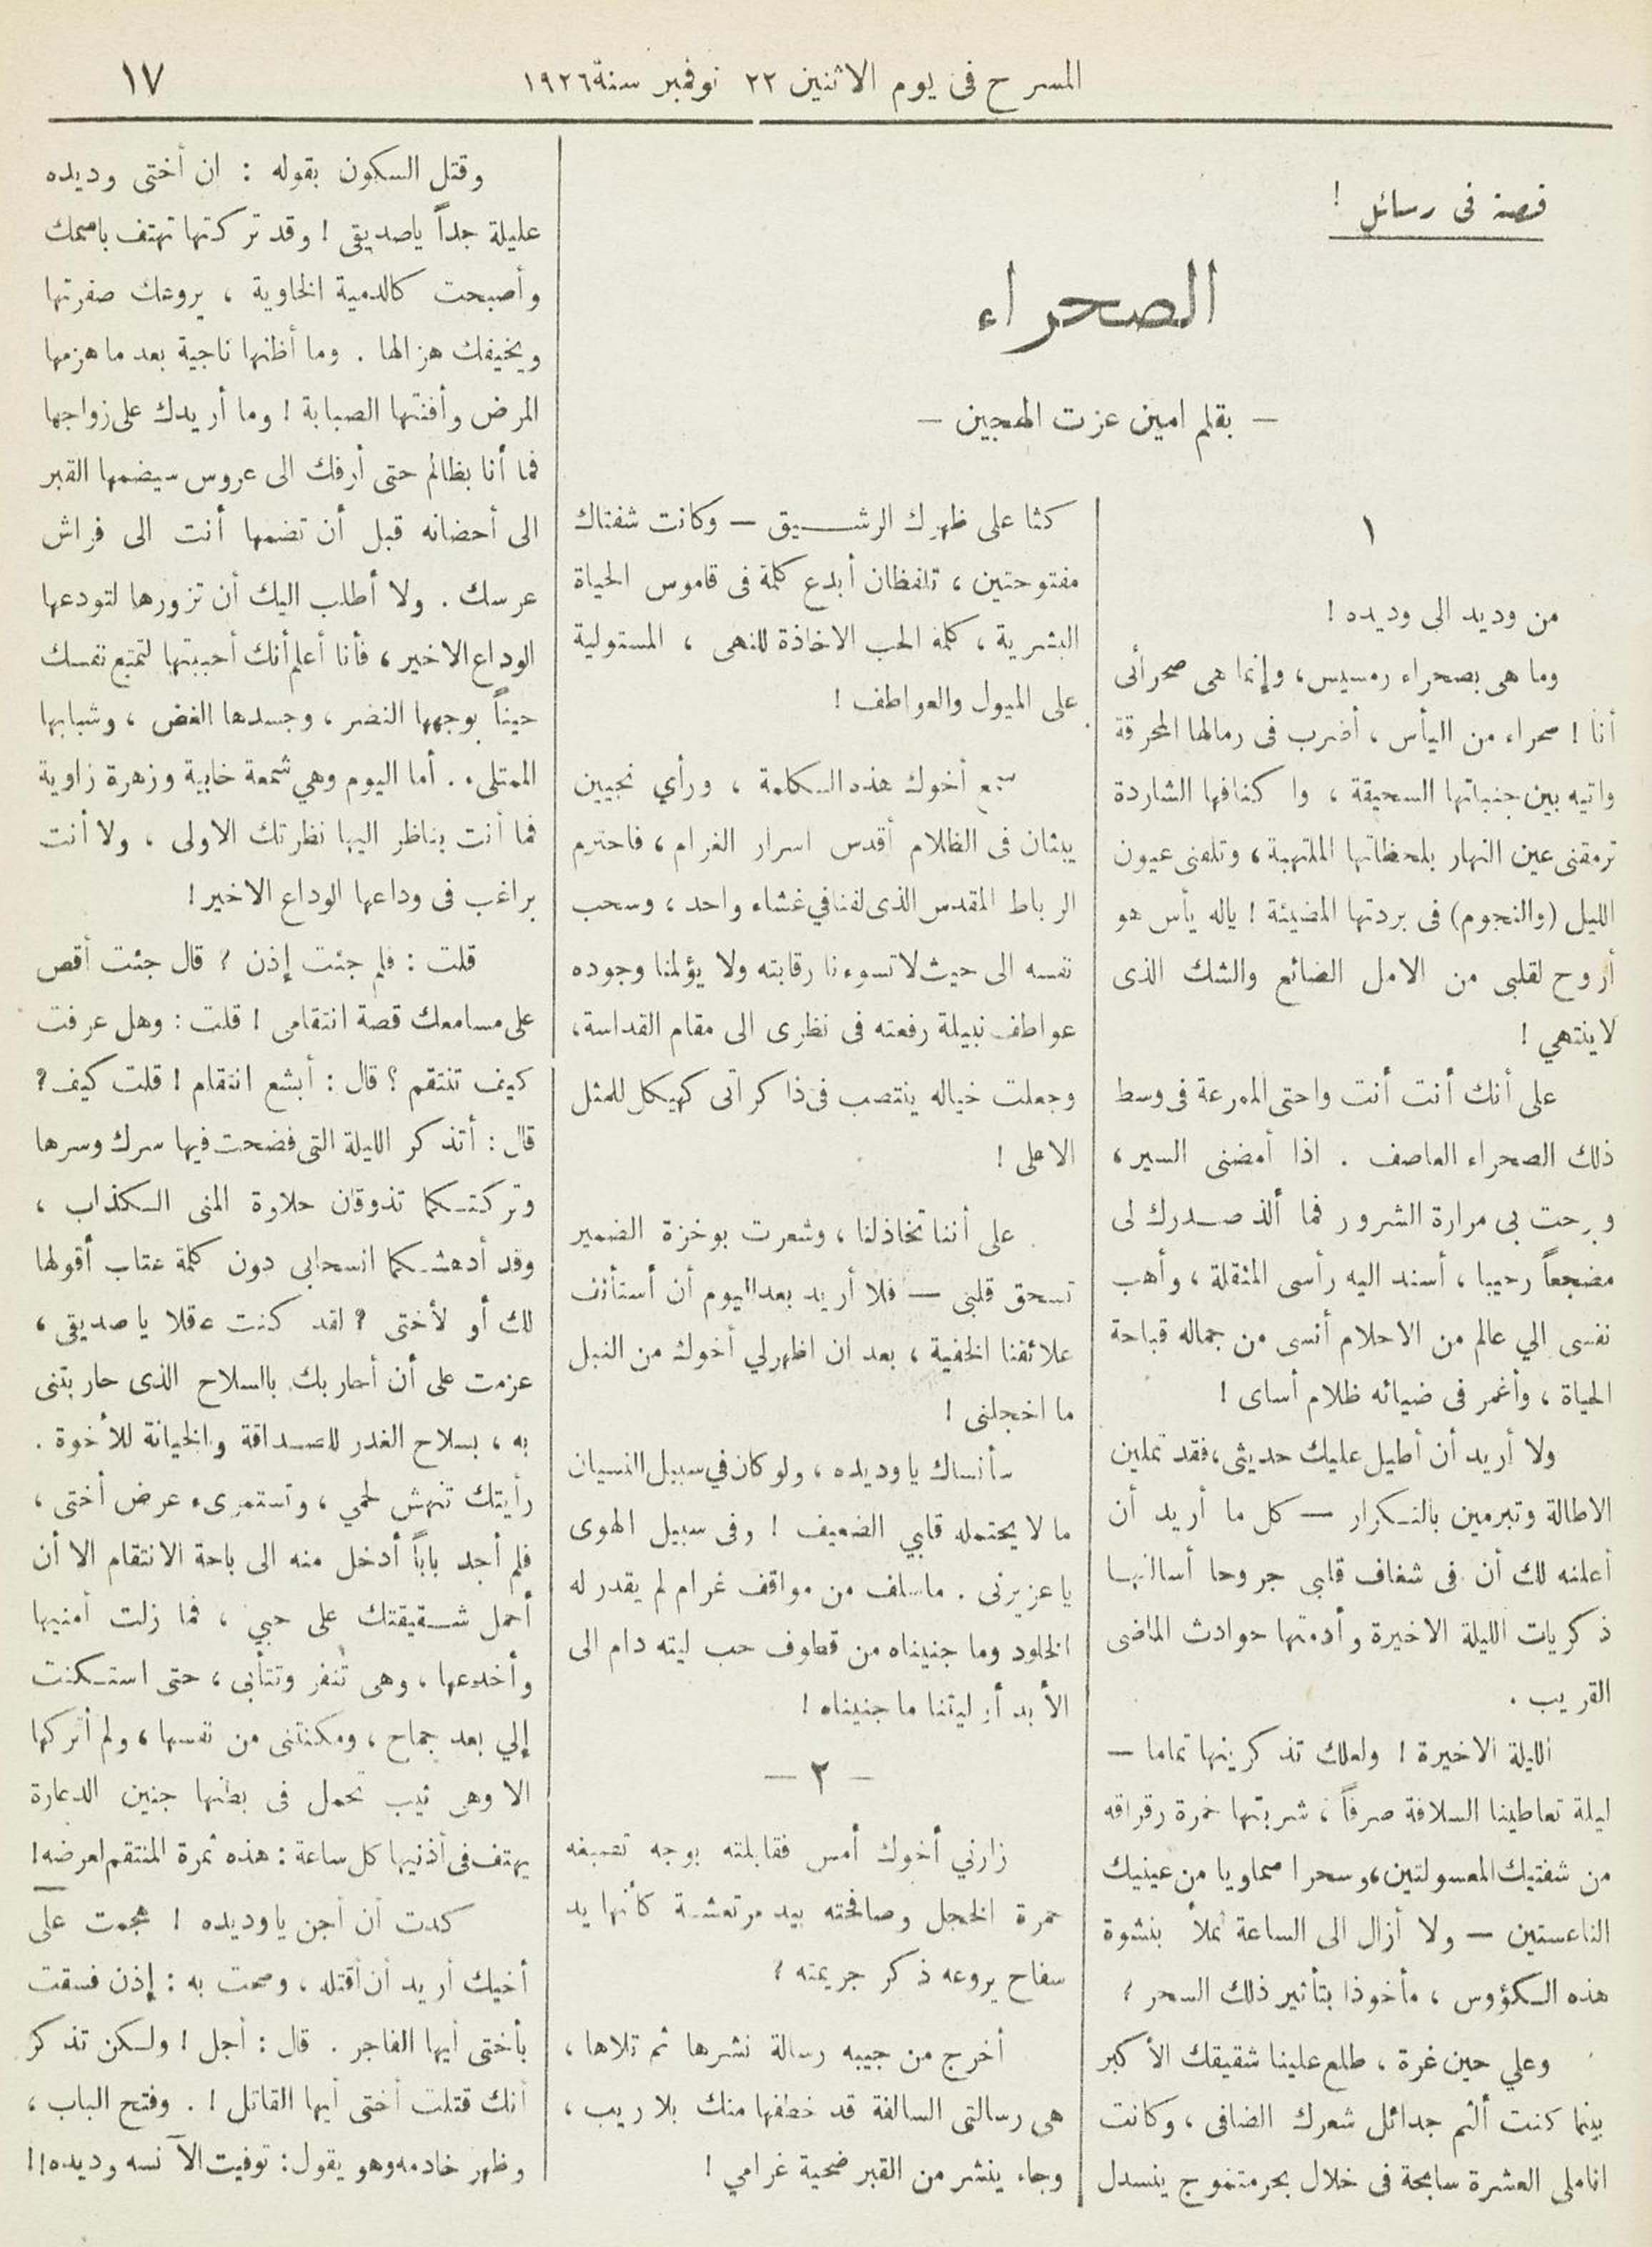 المسرح فى يوم الاثنين ٢٢ نوفمبر سنة ١٩٢٦
١٧
قصة فى رسائل !
الصحراء
— بقلم امين عزت الهجين —
١
من وديد الى وديده !
وما هى بصحراء رمسيس، وإنما هى صحرأى
أنا ! صحراء من اليأس ، أضرب فى رمالها المحرقة
واتيه بين جنباتها السحيقة ، وا كنافها الشاردة
ترمقنى عين النهار بلحظاتها الملتهبة، وتلفنى عيون
الليل (والنجوم) فى بردتها المضيئة ! ياله يأس هو
أروح لقلبى من الامل الضائع والشك الذى
لاينتهي !
على أنك أنت أنت واحتى الممرعة فى وسط
ذلك الصحراء العاصف . اذا أمضنى السير ،
وبرحت بى مرارة الشرور فما ألذ صدرك لى
مضجعاً رحيبا ، أسند اليه رأسى المثقلة ، وأهب
نفسى الي عالم من الاحلام أنسى من جماله قباحة
الحياة ، وأغمر فى ضيائه ظلام أساى !
ولا أريد أن أطيل عليك حديثى، فقد تملين
الاطالة وتبرمين بالتكرار — كل ما أريد أن
أعلنه لك أن فى شغاف قلبي جروحا أسالتها
ذكريات الليلة الاخيرة وأدمتها حوادث الماضى
القريب .
الليلة الاخيرة ! ولعلك تذكرينها تماما —
ليلة تعاطينا السلافة صرفاً ، شربتها خمرة رقراقه
من شفتيك المعسولتين، وسحرا سماويا من عينيك
الناعستين — ولا أزال الى الساعة ثملاً بنشوة
هذه الكؤوس ، مأخوذا بتأثير ذلك السحر ؟
وعلي حين غرة ، طلع علينا شقيقك الأكبر
بينما كنت ألثم جدائل شعرك الضافى ، وكانت
اناملى العشرة سابحة فى خلال بحر متموج ينسدل
كثا على ظهرك الرشيق — وكانت شفتاك
مفتوحتين ، تلفظان أبدع كلمة فى قاموس الحياة
البشرية ، كلمة الحب الاخاذة للنهى ، المستولية
على الميول والعواطف !
سمع أخوك هذه الكلمة ، ورأي نجيين
يبثان فى الظلام أقدس اسرار الغرام ، فاحترم
الرباط المقدس الذى لفنا في غشاء واحد ، وسحب
نفسه الى حيث لاتسوءنا رقابته ولا يؤلمنا وجوده
عواطف نبيلة رفعته فى نظرى الى مقام القداسة،
وجعلت خياله ينتصب فى ذاكراتى كهيكل للمثل
الاعلى !
على أننا تخاذلنا ، وشعرت بوخزة الضمير
تسحق قلبى — فلا أريد بعد اليوم أن أستأنف
علائقنا الخفية ، بعد ان اظهر لي أخوك من النبل
ما اخجلنى !
سأنساك يا وديده ، ولو كان في سبيل النسيان
ما لا يحتمله قلبي الضعيف ! وفى سبيل الهوى
يا عزيزتى . ماسلف من مواقف غرام لم يقدر له
الخلود وما جنيناه من قطوف حب ليته دام الى
الأبد أو ليتنا ما جنيناه !
— ٢ —
زارني أخوك أمس فقابلته بوجه تصبغه
حمرة الخجل وصافحته بيد مرتعشة كأنها يد
سفاح يروعه ذكر جريمته ؟
أخرج من جيبه رسالة نشرها ثم تلاها ،
هى رسالتى السالفة قد خطفها منك بلا ريب ،
وجاء ينشر من القبر ضحية غرامي !
وقتل السكون بقوله : ان أختى وديده
عليلة جداً ياصديقى ! وقد تركتها تهتف باسمك
وأصبحت كالدمية الخاوية ، يروعك صفرتها
ويخيفك هزالها . وما أظنها ناجية بعد ما هزمها
المرض وأفنتها الصبابة ! وما أريدك على زواجها
فما أنا بظالم حتى أزفك الى عروس سيضمها القبر
الى أحضانه قبل أن تضمها أنت الى فراش
عرسك . ولا أطلب اليك أن تزورها لتودعها
الوداع الاخير، فأنا أعلم أنك أحببتها لتمتع نفسك
حيناً بوجهها النضر ، وجسدها الغض ، وشبابها
الممتلىء . أما اليوم وهي شمعة خابية وزهرة زاوية
فما أنت بناظر اليها نظرتك الاولى ، ولا أنت
براغب فى وداعها الوداع الاخير !
قلت : فلم جئت إذن ؟ قال جئت أقص
على مسامعك قصة انتقامى ! قلت : وهل عرفت
كيف تنتقم ؟ قال : أبشع انتقام ! قلت كيف ؟
قال : أتذكر الليلة التى فضحت فيها سرك وسرها
وتركتكما تذوقان حلاوة المنى الكذاب ،
وقد أدهشكما انسحابى دون كلمة عتاب أقولها
لك أو لأختى ؟ لقد كنت عقلا يا صديقى ،
عزمت على أن أحاربك بالسلاح الذى حاربتنى
به ، بسلاح الغدر للصداقة والخيانة للأخوة .
رأيتك تنهش لحمي ، وتستمرىء عرض أختى ،
فلم أجد باباً أدخل منه الى باحة الانتقام الا أن
أحمل شقيقتك على حبي ، فما زلت أمنيها
وأخدعها ، وهى تنفر وتتأبى ، حتى استكنت
إلي بعد جماح ، ومكنتنى من نفسها ، ولم أتركها
الا وهى ثيب تحمل فى بطنها جنين الدعارة
يهتف فى أذنيها كل ساعة : هذه ثمرة المنتقم لعرضه!
كدت أن أجن يا وديده ! هجمت على
أخيك أريد أن أقتله ، وصحت به : إذن فسقت
بأختى أيها الفاجر . قال : أجل ! ولكن تذكر
أنك قتلت أختى أيها القاتل ! . وفتح الباب ،
وظهر خادمه وهو يقول : توفيت الآنسه وديده !!